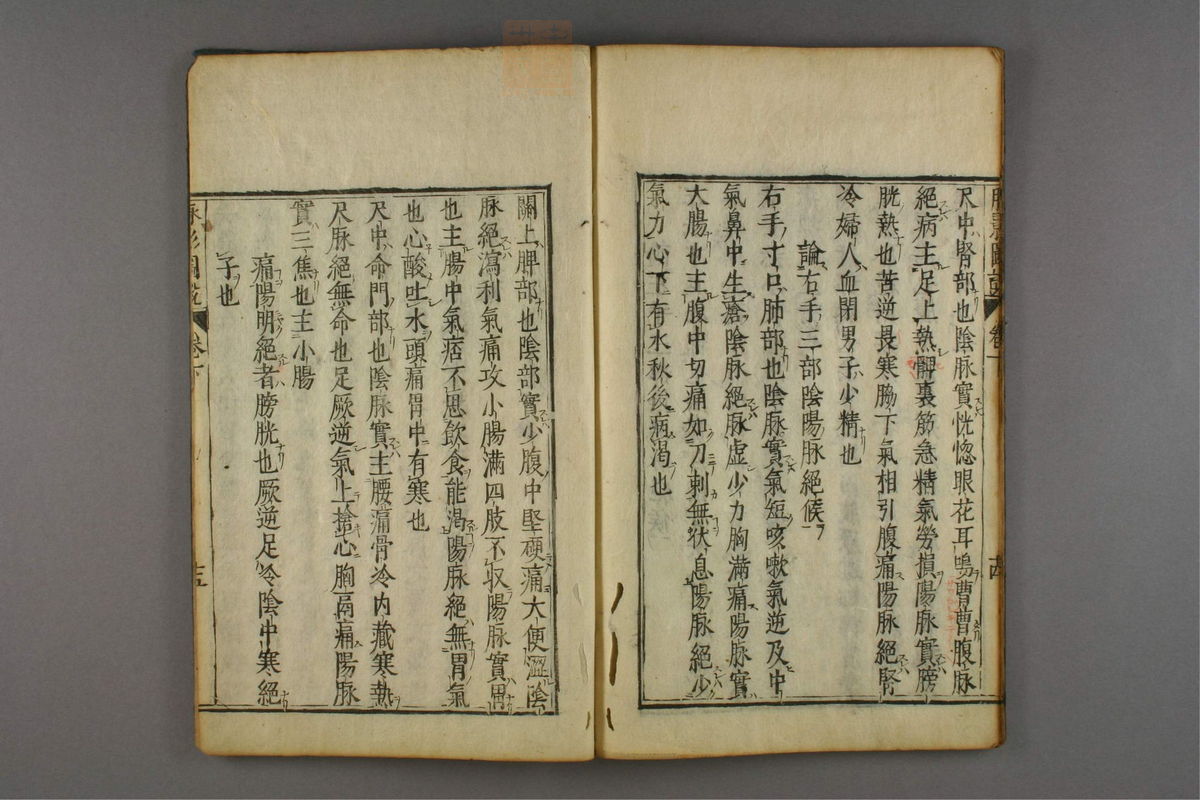 尺中腎部也陰脉實恍惚眼花耳鳴曹曹腹脉
絕病主足上熱髀裏筋急精氣勞損陽脉實膀
胱熱也苦逆長寒脇下氣相引腹痛陽脉絕腎
冷婦人血閉男子少精也
論右手三部陰陽脉絕候
右手寸口肺部也陰脉實氣短咳嗽氣逆及中
氣鼻中生瘡陰脉絕脉虛少力胸滿痛陽脉實
大腸也主腹中切痛如刀刺無狀息陽脉絕少
氣力心下有水秋後病渴也
脉影圖說 卷下 十四
關上脾部也陰部實少腹中堅硬痛大便澀陰
脉絕瀉利氣痛攻小腸滿四肢不収陽脉實胃
也主腸中氣痞不思飲食能渴陽脉絕無胃氣
也心酸吐水頭痛胃中有寒也
尺中命門部也陰脉實主腰痛骨冷内藏寒熱
尺脉絕無命也足厥逆氣上搶心胸鬲痛陽脉
實三焦也主小腸
痛陽明絕者膀胱也厥逆足冷陰中寒絕
子也
脉影圖說 卷下 十五